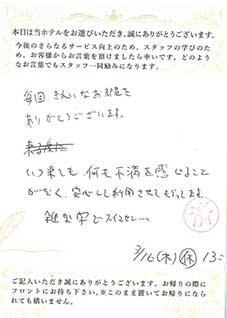 本日は当ホテルをお選びいただき、誠にありがとうございます。
今後のさらなるサービス向上のため、スタッフの学びのため、お客様からお言葉を頂けましたら幸いです。どのようなお言葉でもスタッフ一同励みになります。
毎回 きれいなお部屋を
ありがとうございます。
いつ来ても、何も不満を感じること
がなく、安心して利用させてもらってます。
雑な字でスイマセン…
3/16(木) 休 13
ご記入いただき誠にありがとうございます。お帰りの際に
フロントにお持ち下さい。※このまま置いてお帰りになられても構いません。